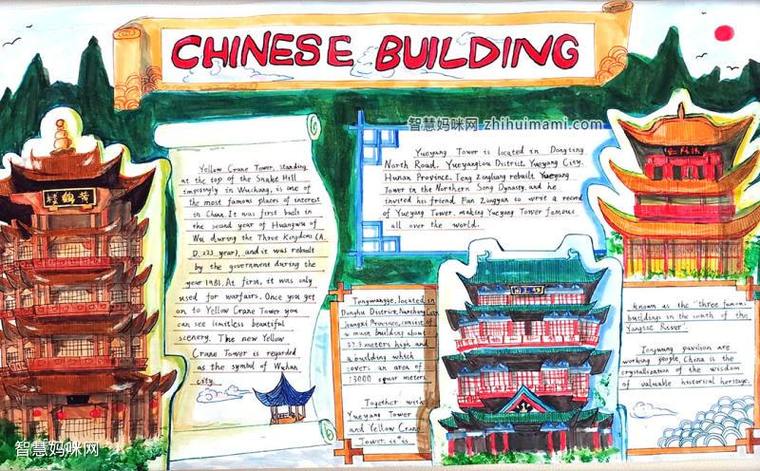 CHINESE BUILDING
智慧妈咪网 zhihuimami.com
黄鹤楼
Yellow Crane Tower, standing
at the top of the Snake Hill
imposingly in Wuchang, is one of
the most famous places of interest
in China. It was first built in
the second year of Huangwu of
Wu during the Three Kingdoms (A.
D. 223 year), and it was rebuilt
by the government during the
year 1981. At first, it was only
used for warfairs. Once you get
on to Yellow Crane Tower you
can see limitless beautiful
scenery. The new Yellow
Crane Tower is regarded
as the symbol of Wuhan
city
Yueyang Tower is located in Dongting
North Road, Yueyanglou District, Yueyang City,
Hunan Province. Teng Zongliang rebuilt Yueyang
Tower in the Northern Song Dynasty, and he
invited his friend Fan Zongyan to write a record
of Yueyang Tower, making Yueyang Tower famous
all over the world.
Tengwangge, located in
Donghu District, Nanchang City
Jiangxi Province, consist of
a main building about
57.5 meters high and
a building which
covers an area of
13000 squar meters
Together with
Yueyang Tower
and Yellow Crane
Tower,
known as the "three famous
buildings in the south of the
Yangtse River".
Tengwang pavilion are
working people, China is the
crystallization of the wisdom
of valuable historical heritage.
智慧妈咪网